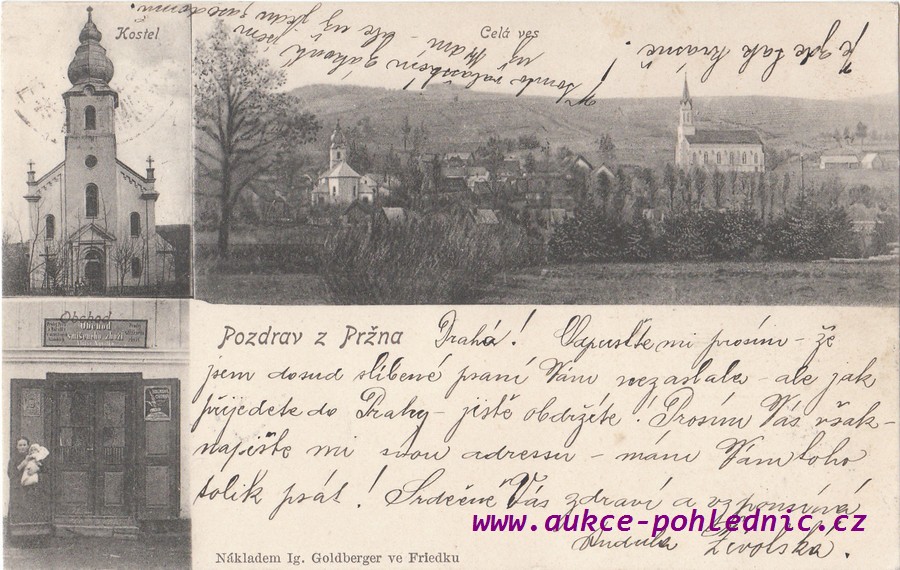 Kostel
Celá ves
Obchod
Obchod
Pozdrav z Pržna
Drahá! Odpusťte mi prosím – že
jsem dosud slíbené psaní Vám nezaslala – ale jak
přijedete do Prahy – jistě obdržíte! Prosím Vás však –
napište mi svou adressu – mám Vám toho
tolik psát! Srdečně Vás zdraví a vzpomíná
www.aukce-pohlednic.cz
Zívolská.
Nákladem Ig. Goldberger ve Friedku
je zde tak krásně!
V tomto valašském zákoutí jsem